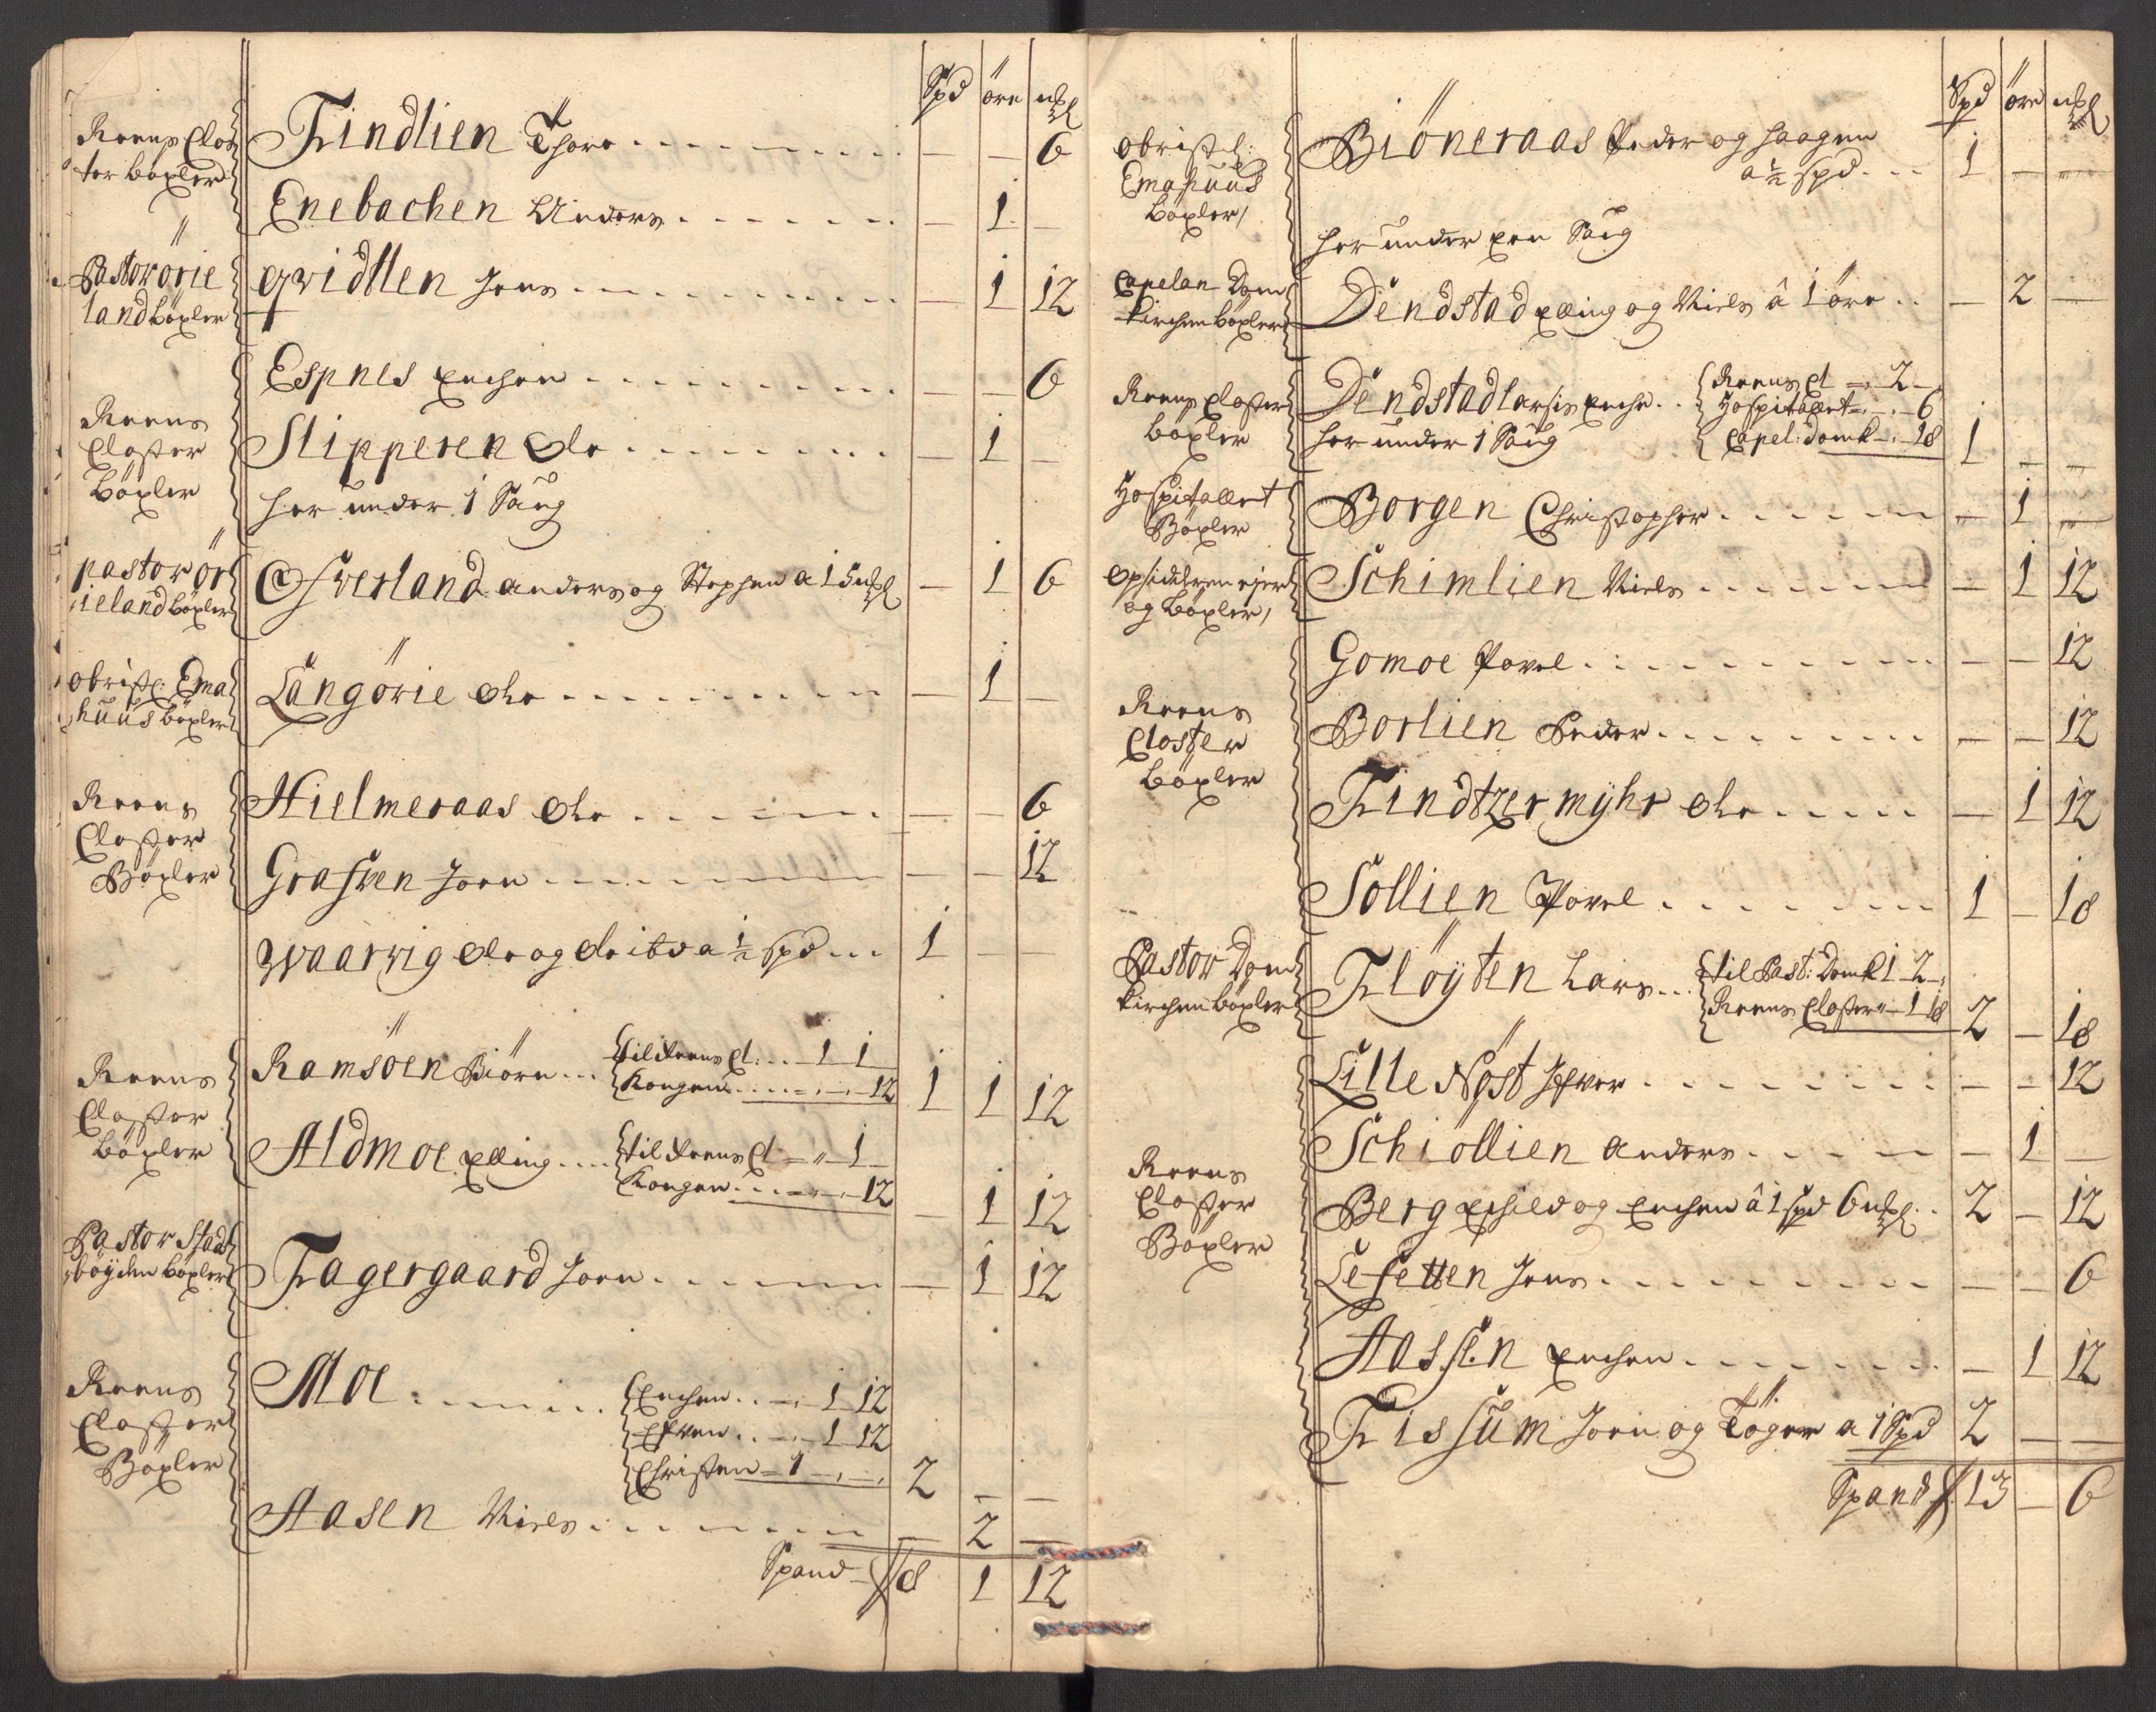 Spd öre mkl
Reens Clos
ter böxler
Findlien Thore - - 6
Enebachen Anders - 1 -
Pastor örie
land böxler
qvidtlen Jens - 1 12
Espnes Erichen - - 6
Reens
Closter
Böxler
Slipperen Ole - 1 -
her under 1 Saug
pastor ör
ieland böxler
Sverland anders og Stephen a 15 mkl - 1 6
obristl. Ema
huus böxler
Langörie Ole - 1 -
Reens
Closter
Böxler
Hielmeraas Ole - - 6
Grasven Joen - - 12
Waarvig Ole og Ole ibd a ½ spd 1 - -
Reens
Closter
böxler
Ramsöen Biörn til Reens Cl: 1 1
Kongen 12 1 1 12
Aldmoe Elling til Reens Cl 1
Kongen 12 - 1 12
Pastor Stads
böyden böxler
Fagergaard Joen - 1 12
Reens
Closter
Böxler
Moe Erichen 1 12
Efven 1 12
Christen 1 2 - -
Aasen Niels - 2 -
Spand 8 1 12
Spd öre mkl
obristl:
Emahuus
böxler
Biöneraas Peder og Haagen
a ½ spd 1 - -
her under een Saug
Capelan Dom
kirchen böxler
Dendstad Elling og Niels â 1 öre - 2 -
Reens Closter
böxler
Dendstad Larsis Enche Reens Cl 2
Hospitallet 6
her under 1 Saug Capel: domk 18 1 - -
Hospitallet
Böxler
Borgen Christopher - 1 -
Opsidderen ejer
og böxler
Schimlien Niels - 1 12
Gomoe Povel - - 12
Reens
Closter
böxler
Borlien Peder - - 12
Findtzermyhr Ole - 1 12
Sollien Povel 1 - 18
Pastor Dom
kirchen böxler
Flöyten Lars til Past: Domk 1 2
Reens Closter 1 18 2 - 18
Lille Nöst Ifver - - 12
Schiöllien Anders - 1 -
Reens
Closter
Böxler
Berg Eshild og Erichen â 1 spd 6 mkl 2 - 12
Lefetten Jens - - 6
Aassen Erichen - 1 12
Fissum Joen og Töger a 1 Spd 2 - -
Spand 13 - 6